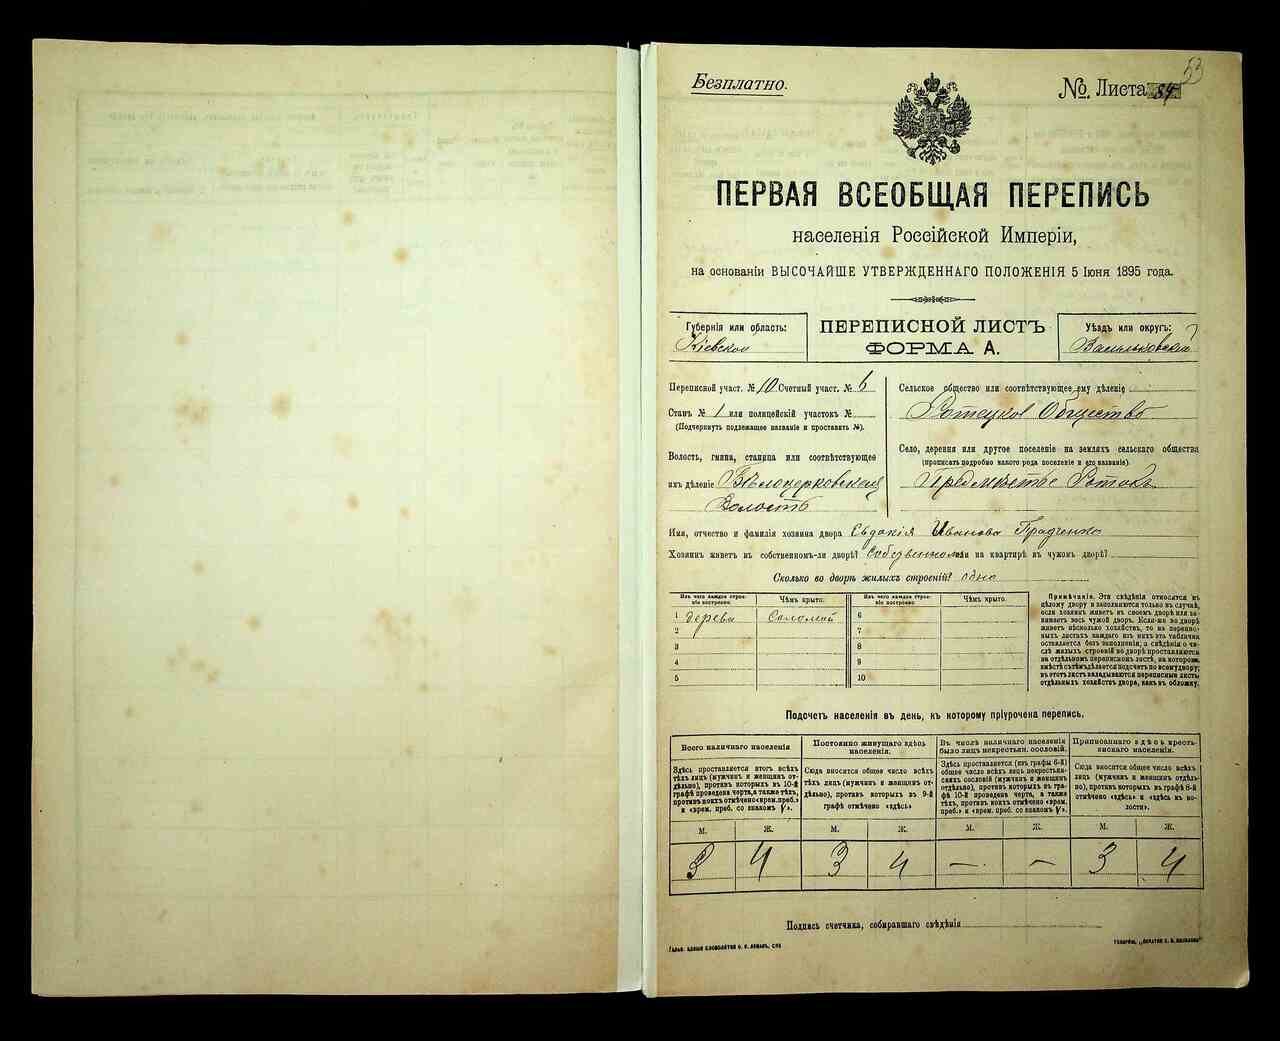 53
Безплатно.
№. Листа 84
ПЕРВАЯ ВСЕОБЩАЯ ПЕРЕПИСЬ
населенія Россійской Имперіи,
на основаніи ВЫСОЧАЙШЕ УТВЕРЖДЕННАГО ПОЛОЖЕНІЯ 5 Іюня 1895 года.
Губернія или область:
Кіевской
ПЕРЕПИСНОЙ ЛИСТЪ
ФОРМА А.
Уѣздъ или округъ:
Васильковскій
Переписной участ. № 10 Счетный участ. № 6
Станъ № 1 или полицейскій участокъ №
(Подчеркнуть подлежащее названіе и проставить №).
Волость, гмина, станица или соотвѣтствующее
ихъ дѣленіе Бѣлоцерковская
Волость
Сельское общество или соотвѣтствующее ему дѣленіе
Общество
Село, деревня или другое поселеніе на земляхъ сельскаго общества
(прописать подробно какого рода поселеніе и его названіе).
Предмѣстье Ротокъ
Имя, отчество и фамилія хозяина двора Евдокія Иванова
Хозяинъ живетъ въ собственномъ-ли дворѣ? или на квартирѣ въ чужомъ дворѣ?
Сколько во дворѣ жилыхъ строеній? одно
Изъ чего каждое строеніе построено.
Чѣмъ крыто.
Изъ чего каждое строеніе построено.
Чѣмъ крыто.
1 дерева Соломой 6
2 7
3 8
4 9
5 10
Примѣчаніе. Эти свѣдѣнія относятся къ
цѣлому двору и заполняются только въ случаѣ,
если хозяинъ живетъ въ своемъ дворѣ или занимаетъ
весь чужой дворъ. Если-же во дворѣ
живетъ нѣсколько хозяйствъ, то на переписныхъ
листахъ каждаго изъ нихъ эта табличка
оставляется безъ заполненія, а свѣдѣнія о числѣ
жилыхъ строеній во дворѣ проставляются
на отдѣльномъ переписномъ листѣ, на которомъ
вмѣстѣ съ тѣмъ дѣлается подсчетъ по всему двору;
въ этотъ листъ вкладываются переписные листы
отдѣльныхъ хозяйствъ двора, какъ въ обложку.
Подсчетъ населенія въ день, къ которому пріурочена перепись.
Всего наличнаго населенія
Постоянно живущаго здѣсь
населенія.
Въ числѣ наличнаго населенія
было лицъ некрестьян. сословій.
Приписаннаго здѣсь крестьянскаго
населенія.
Здѣсь проставляется итогъ всѣхъ
тѣхъ лицъ (мужчинъ и женщинъ отдѣльно),
противъ которыхъ въ 10-й
графѣ проведена черта, а также тѣхъ,
противъ коихъ отмѣчено «врем. преб.»
и «врем. преб. со знакомъ V».
Сюда вносится общее число всѣхъ
тѣхъ лицъ (мужчинъ и женщинъ отдѣльно),
противъ которыхъ въ 9-й
графѣ отмѣчено «здѣсь»
Здѣсь проставляется (изъ графы 6-й)
общее число всѣхъ лицъ некрестьянскихъ
сословій (мужчинъ и женщинъ
отдѣльно), противъ которыхъ въ графѣ
10-й проведена черта, а также
тѣхъ, противъ коихъ отмѣчено «врем.
преб.» и «врем. преб. со знакомъ V».
Сюда вносится общее число всѣхъ
лицъ (мужчинъ и женщинъ отдѣльно),
противъ которыхъ въ графѣ 8-й
отмѣчено «здѣсь» и «здѣсь въ волости».
М. Ж. М. Ж. М. Ж. М. Ж.
3 4 3 4 — — 3 4
Подпись счетчика, собиравшаго свѣдѣнія